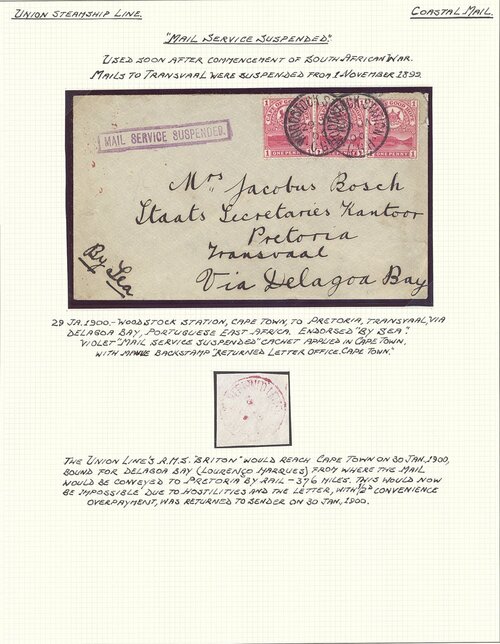 UNION STEAMSHIP LINE.
COASTAL MAIL.
"MAIL SERVICE SUSPENDED."
USED SOON AFTER COMMENCEMENT OF SOUTH AFRICAN WAR.
MAILS TO TRANSVAAL WERE SUSPENDED FROM 1 NOVEMBER 1899.
MAIL SERVICE SUSPENDED.
WOODSTOCK STATION
1 1 1
ONE PENNY ONE PENNY
Mrs Jacobus Bosch
Staats Secretaries Kantoor
Pretoria
Transvaal
By Sea
Via Delagoa Bay
29 JA. 1900.- WOODSTOCK STATION, CAPE TOWN, TO PRETORIA, TRANSVAAL, VIA
DELAGOA BAY, PORTUGUESE EAST AFRICA. ENDORSED "BY SEA".
VIOLET "MAIL SERVICE SUSPENDED" CACHET APPLIED IN CAPE TOWN,
WITH MAUVE BACKSTAMP "RETURNED LETTER OFFICE. CAPE TOWN."
THE UNION LINE'S R.M.S. "BRITON" WOULD REACH CAPE TOWN ON 30 JAN. 1900,
BOUND FOR DELAGOA BAY (LOURENÇO MARQUES) FROM WHERE THE MAIL
WOULD BE CONVEYED TO PRETORIA BY RAIL - 376 MILES. THIS WOULD NOW
BE IMPOSSIBLE DUE TO HOSTILITIES AND THE LETTER, WITH ½D CONVENIENCE
OVERPAYMENT, WAS RETURNED TO SENDER ON 30 JAN. 1900.